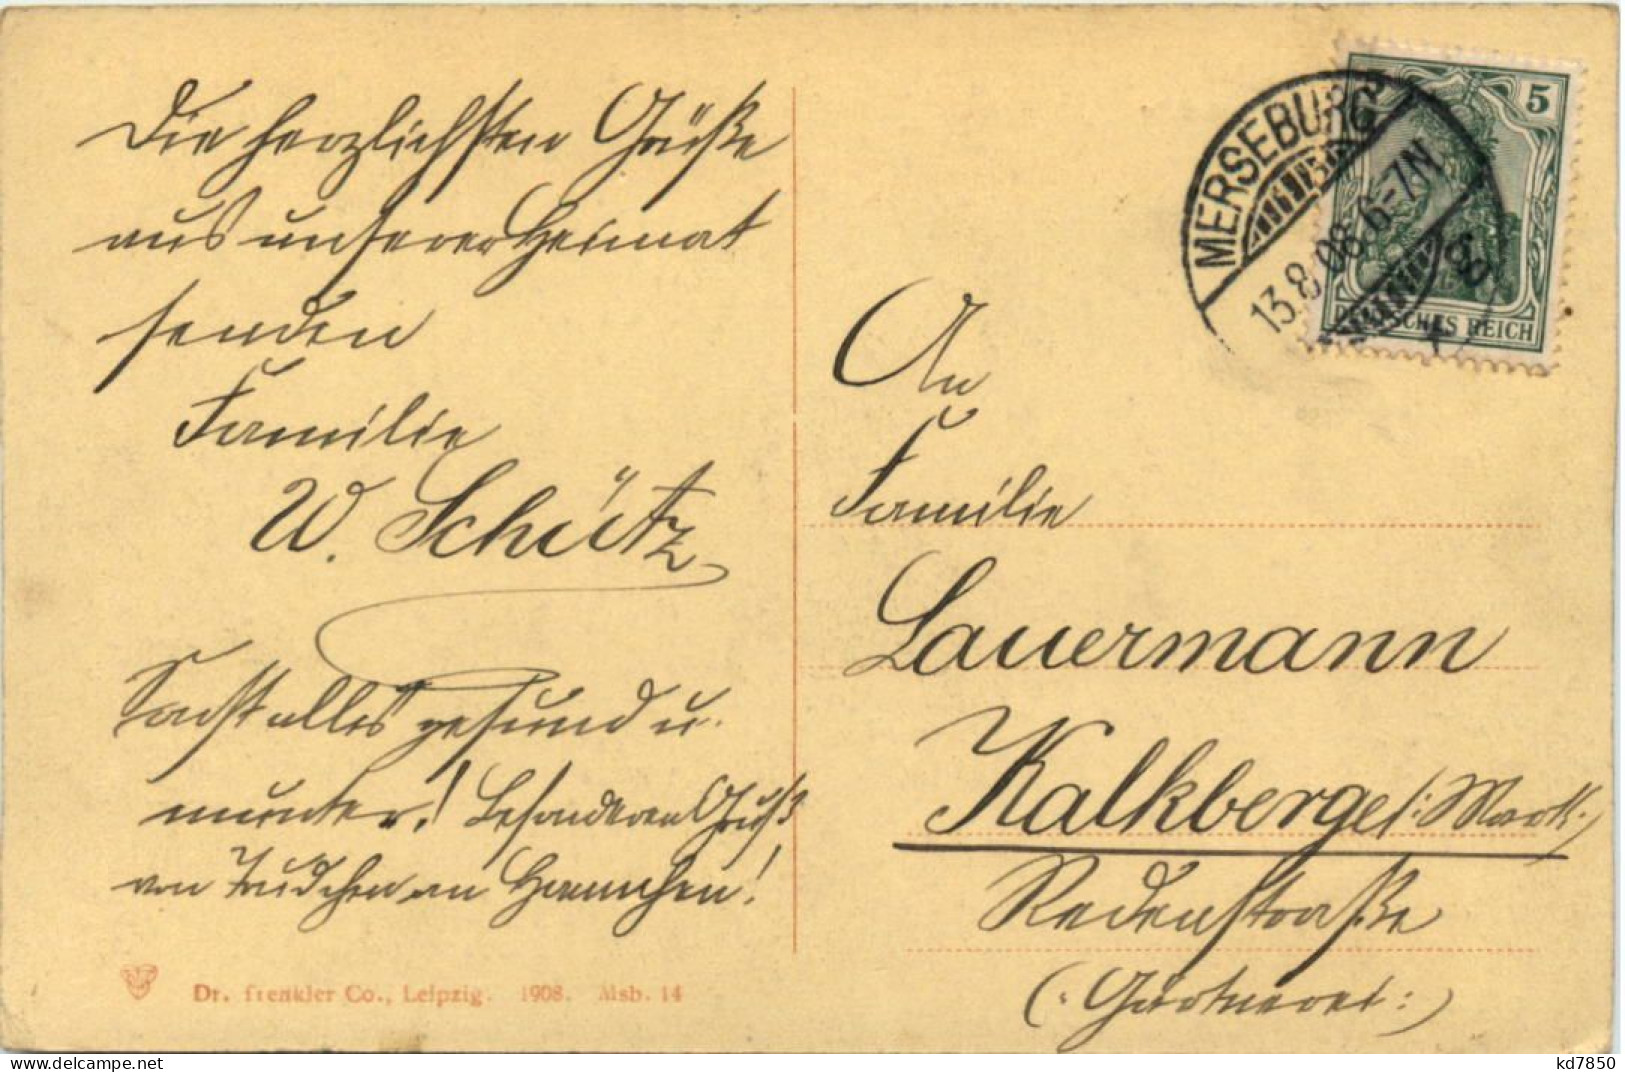 Die herzlichsten Grüße
aus unserer Heimat
senden
Familie
W. Schütz
Sonst alles gesund u.
munter! Besonderen Gruß
von Trudchen an Hannchen!
Dr. Trenkler Co., Leipzig. 1908. Msb. 14
MERSEBURG
13.8.08.6-7N.
5
DEUTSCHES REICH
An
Familie
Lauermann
Kalkberge (: Mark :)
Redenstraße
(: Gärtnerei :)
kd7850